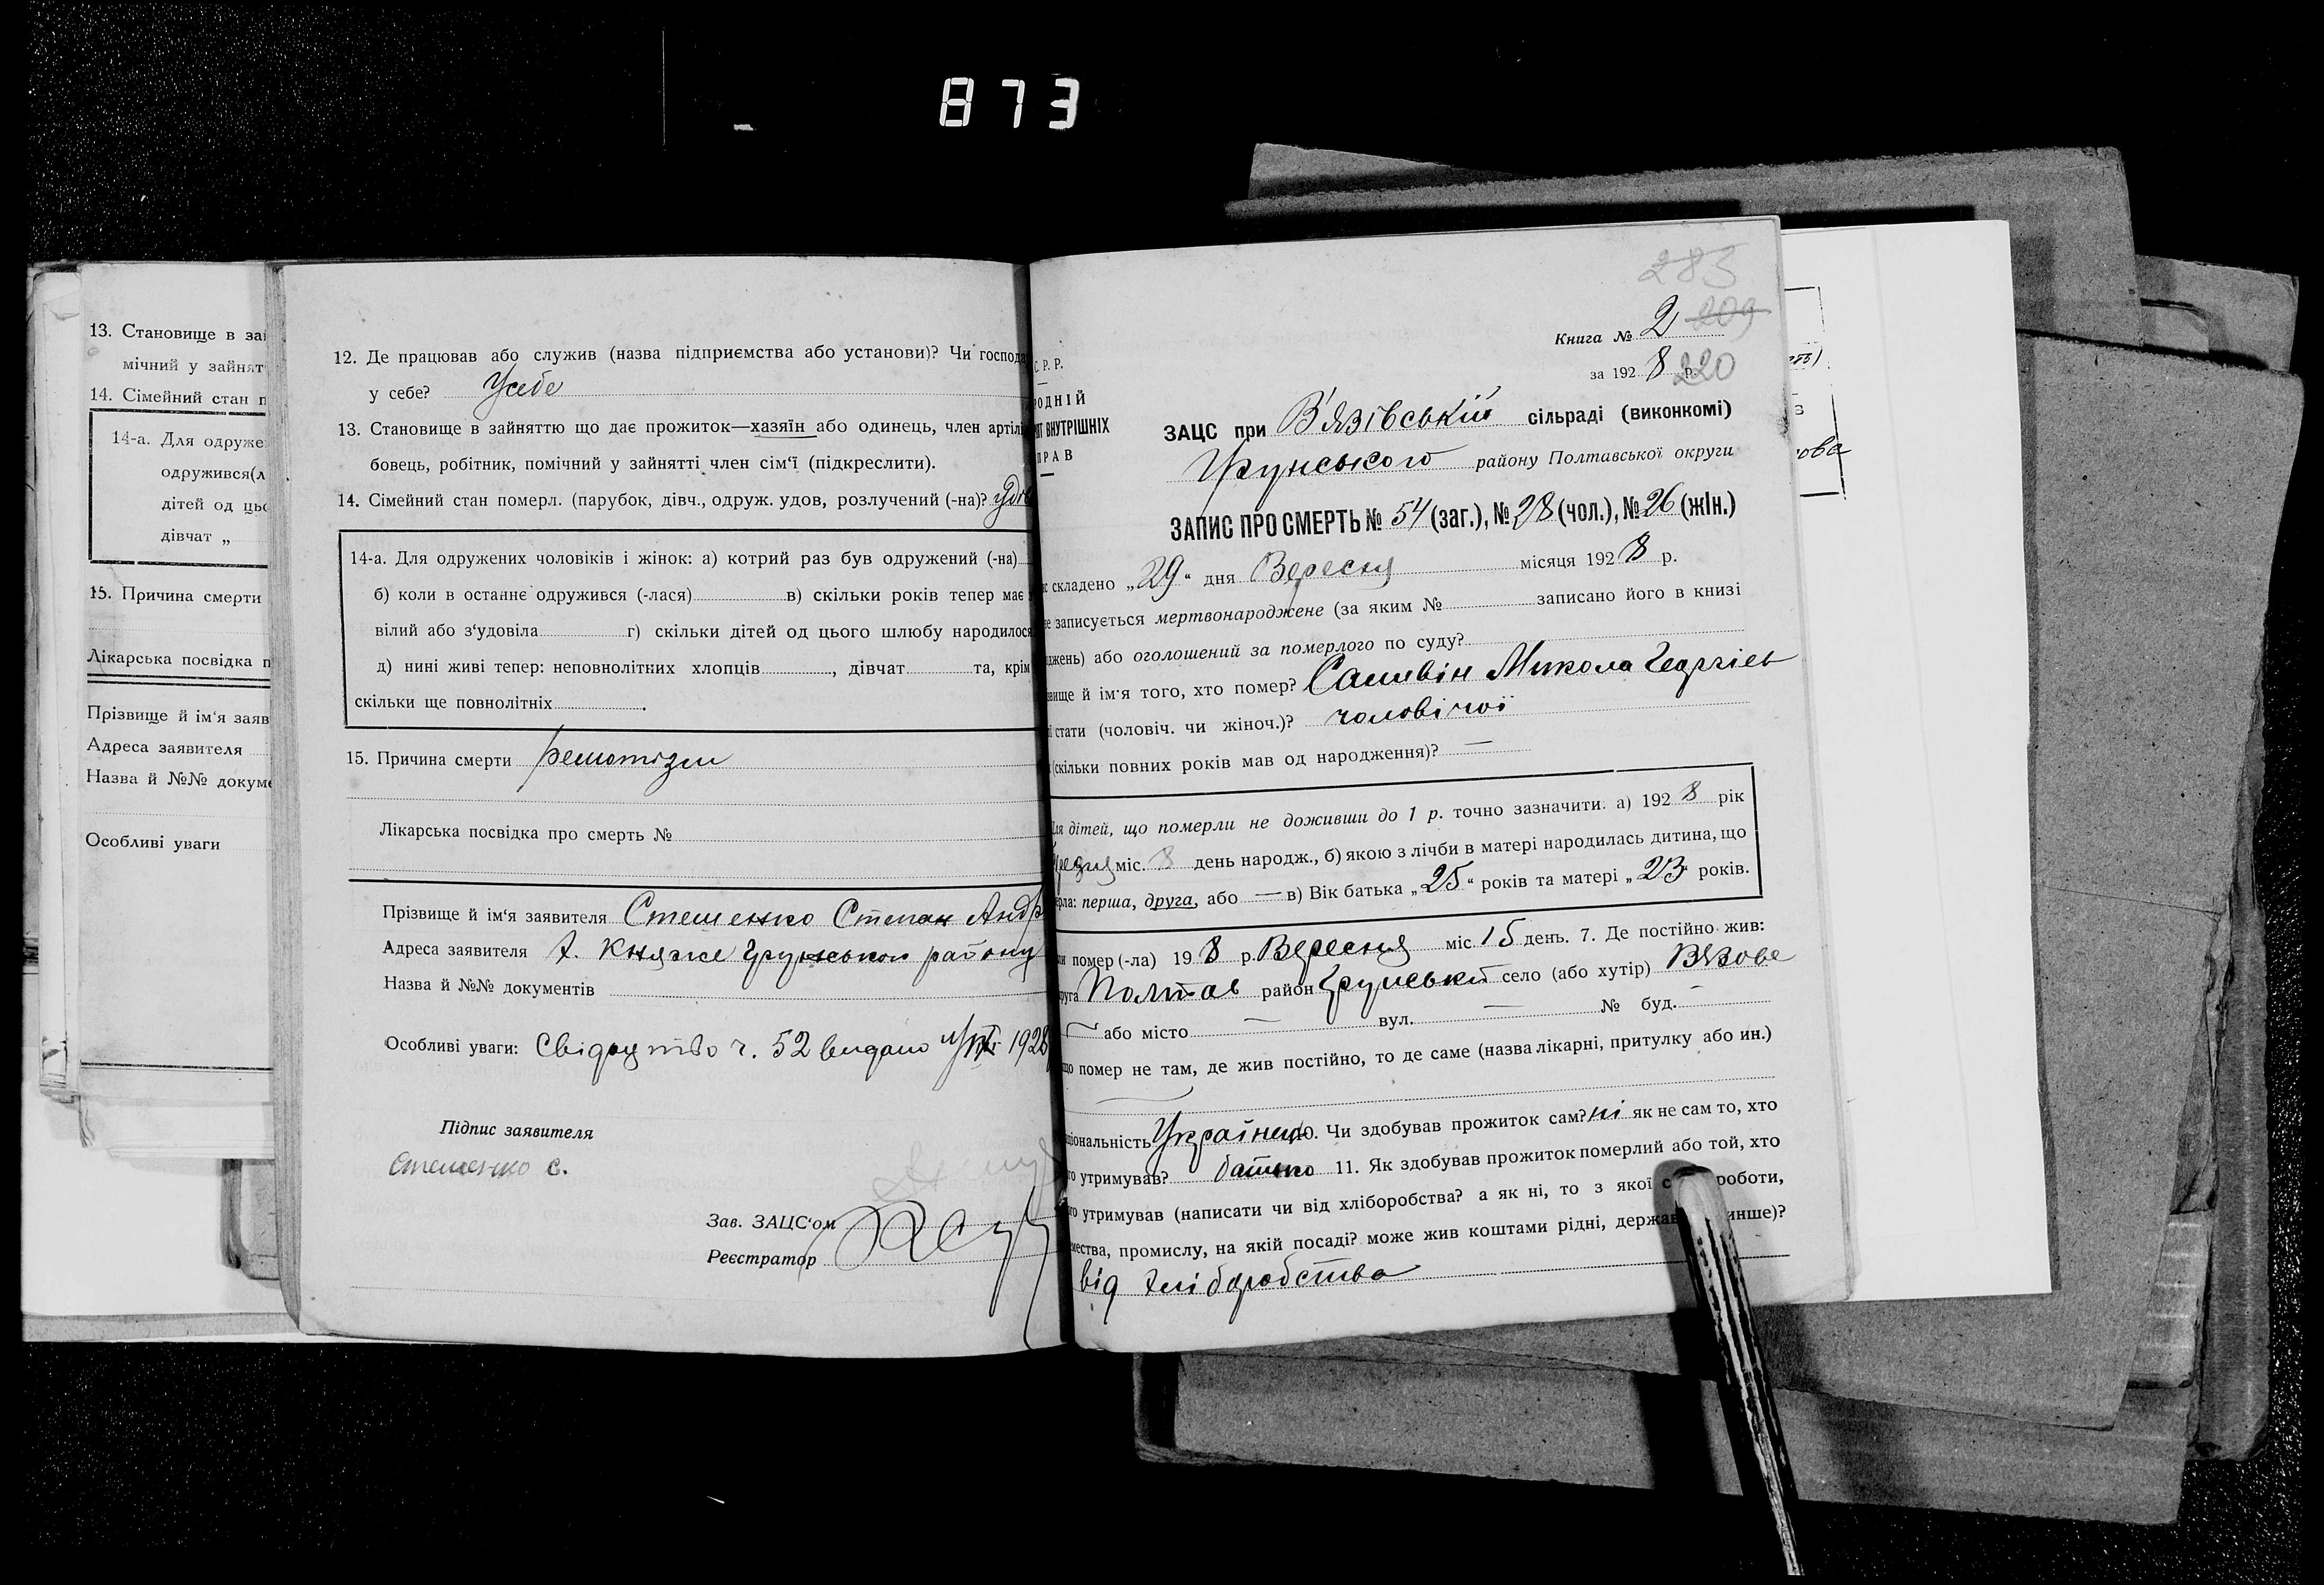 873
13. Становище в зай
мічний у зайнят
14. Сімейний стан п
14-а. Для одруже
одружився(л
дітей од цьо
дівчат „
15. Причина смерти
Лікарська посвідка п
Прізвище й ім‘я заяв
Адреса заявителя
Назва й №№ докуме
Особливі уваги
12. Де працював або служив (назва підприємства або установи)? Чи господа
у себе? Усебе
13. Становище в зайняттю що дає прожиток—хазяїн або одинець, член артіл
бовець, робітник, помічний у зайнятті член сім‘ї (підкреслити).
14. Сімейний стан помер. (парубок, дівч., одруж. удов, розлучений (-на)? удов
14-а. Для одружених чоловіків і жінок: а) котрий раз був одружений (-на)
б) коли в останнє одружився (-лася) в) скільки років тепер має
вілий або з‘удовіла г) скільки дітей од цього шлюбу народилося
д) нині живі тепер: неповнолітних хлопців , дівчат та, крім
скільки ще повнолітніх .
15. Причина смерти
Лікарська посвідка про смерть №
Прізвище й ім‘я заявителя Стешенко Степан Андр
Адреса заявителя х. Княже Грунського району
Назва й №№ документів
Особливі уваги: Свідоцтво ч. 52 видано 1928
Підпис заявителя
Стешенко С.
Зав. ЗАЦС‘ом
Реєстратор
285
Книга № 2 209
за 192 8 р. 220
С. Р. Р.
РОДНІЙ
ВНУТРІШНІХ
ПРАВ
ЗАЦС при В'язівській сільраді (виконкомі)
Грунського району Полтавської округи
ЗАПИС ПРО СМЕРТЬ № 54 (заг.), № 28 (чол.), № 26 (жін.)
складено „29“ дня Вересня місяця 192 8 р.
записується мертвонароджене (за яким № записано його в книзі
джень) або оголошений за померлого по суду?
вище й ім‘я того, хто помер? Саливін Микола Георгієв
стати (чоловіч. чи жіноч.)? чоловічої
(скільки повних років мав од народження)? —
Для дітей, що померли не доживши до 1 р. точно зазначити: а) 192 8 рік
міс. 8 день народж., б) якою з лічби в матері народилась дитина, що
рла: перша, друга, або — в) Вік батька „25“ років та матері „23“ років.
помер (-ла) 19 8 р. Вересня міс. 15 день. 7. Де постійно жив:
руга Полтав район Грунський село (або хутір) Вязове
або місто — вул. — № буд. —
помер не там, де жив постійно, то де саме (назва лікарні, притулку або ин.)
ціональність Українець 10. Чи здобував прожиток сам? ні як не сам то, хто
го утримував? батько 11. Як здобував прожиток померлий або той, хто
го утримував (написати чи від хліборобства? а як ні, то з якої роботи,
мества, промислу, на якій посаді? може жив коштами рідні, держав инше)?
від хліборобства